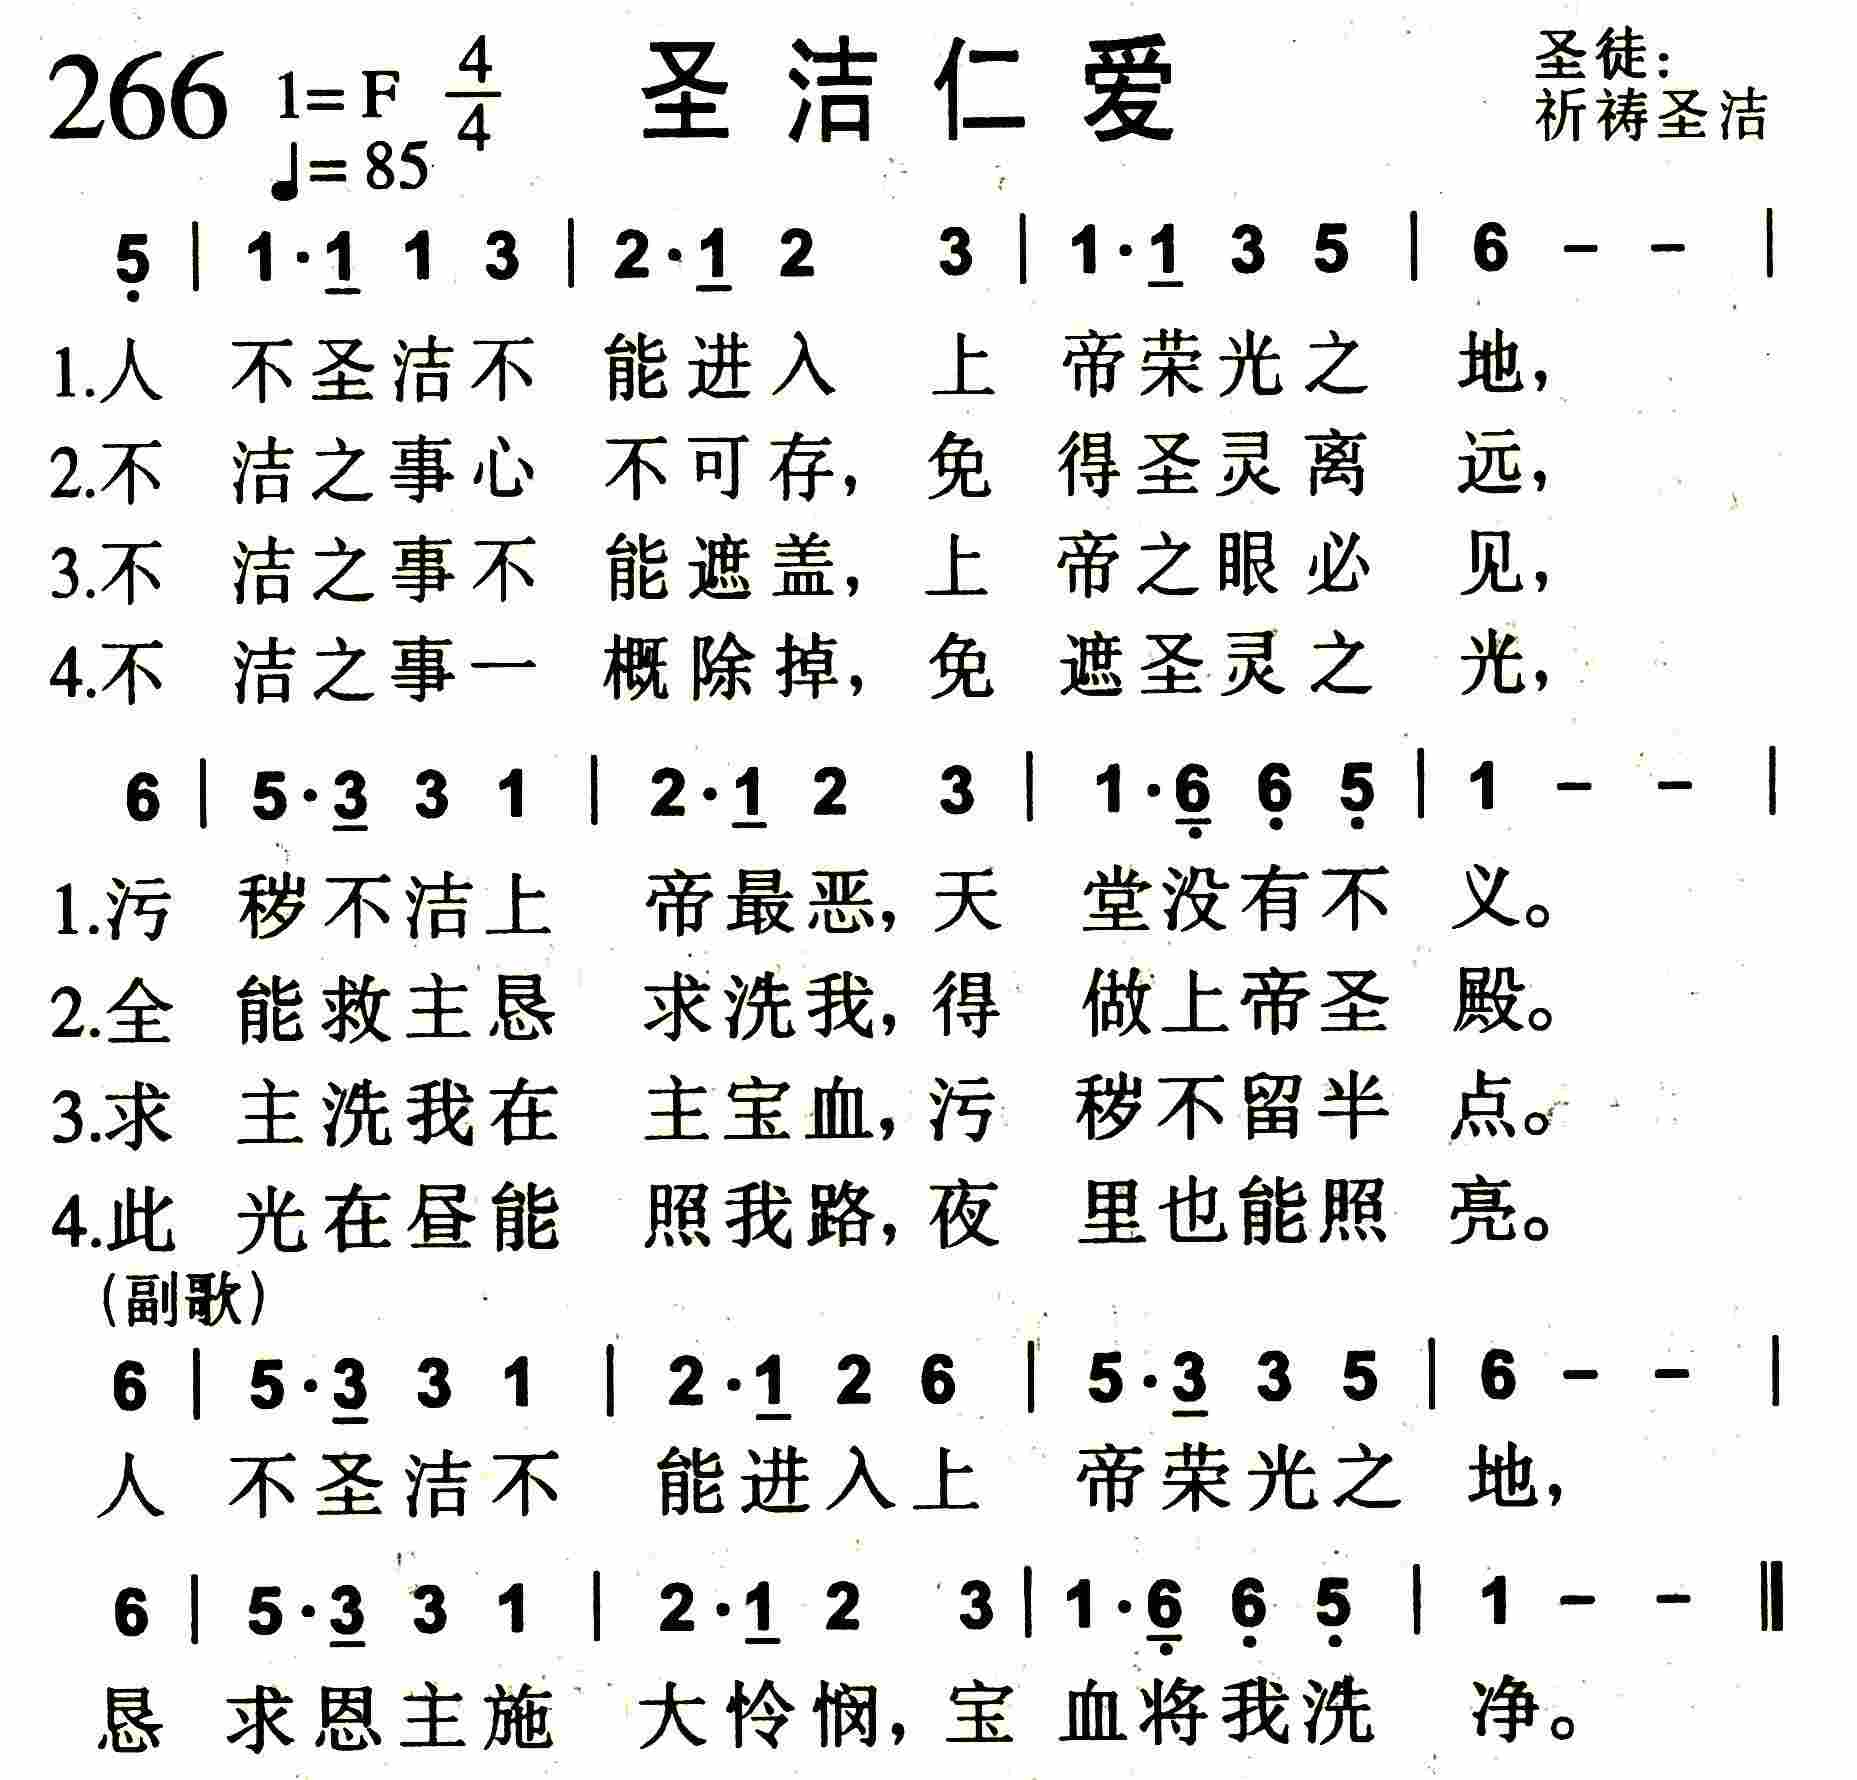 266 1=F 4/4 圣洁仁爱 圣徒:
♩=85 祈祷圣洁
5̣ | 1·1̲ 1 3 | 2·1̲ 2 3 | 1·1̲ 3 5 | 6 - - |
1.人 不圣洁不 能进入 上 帝荣光之 地,
2.不 洁之事心 不可存, 免 得圣灵离 远,
3.不 洁之事不 能遮盖, 上 帝之眼必 见,
4.不 洁之事一 概除掉, 免 遮圣灵之 光,
6 | 5·3̲ 3 1 | 2·1̲ 2 3 | 1·6̲̣ 6̣ 5̣ | 1 - - |
1.污 秽不洁上 帝最恶, 天 堂没有不 义。
2.全 能救主恳 求洗我, 得 做上帝圣 殿。
3.求 主洗我在 主宝血, 污 秽不留半 点。
4.此 光在昼能 照我路, 夜 里也能照 亮。
(副歌)
6 | 5·3̲ 3 1 | 2·1̲ 2 6 | 5·3̲ 3 5 | 6 - - |
人 不圣洁不 能进入上 帝荣光之 地,
6 | 5·3̲ 3 1 | 2·1̲ 2 3 | 1·6̲̣ 6̣ 5̣ | 1 - - ‖
恳 求恩主施 大怜悯, 宝 血将我洗 净。